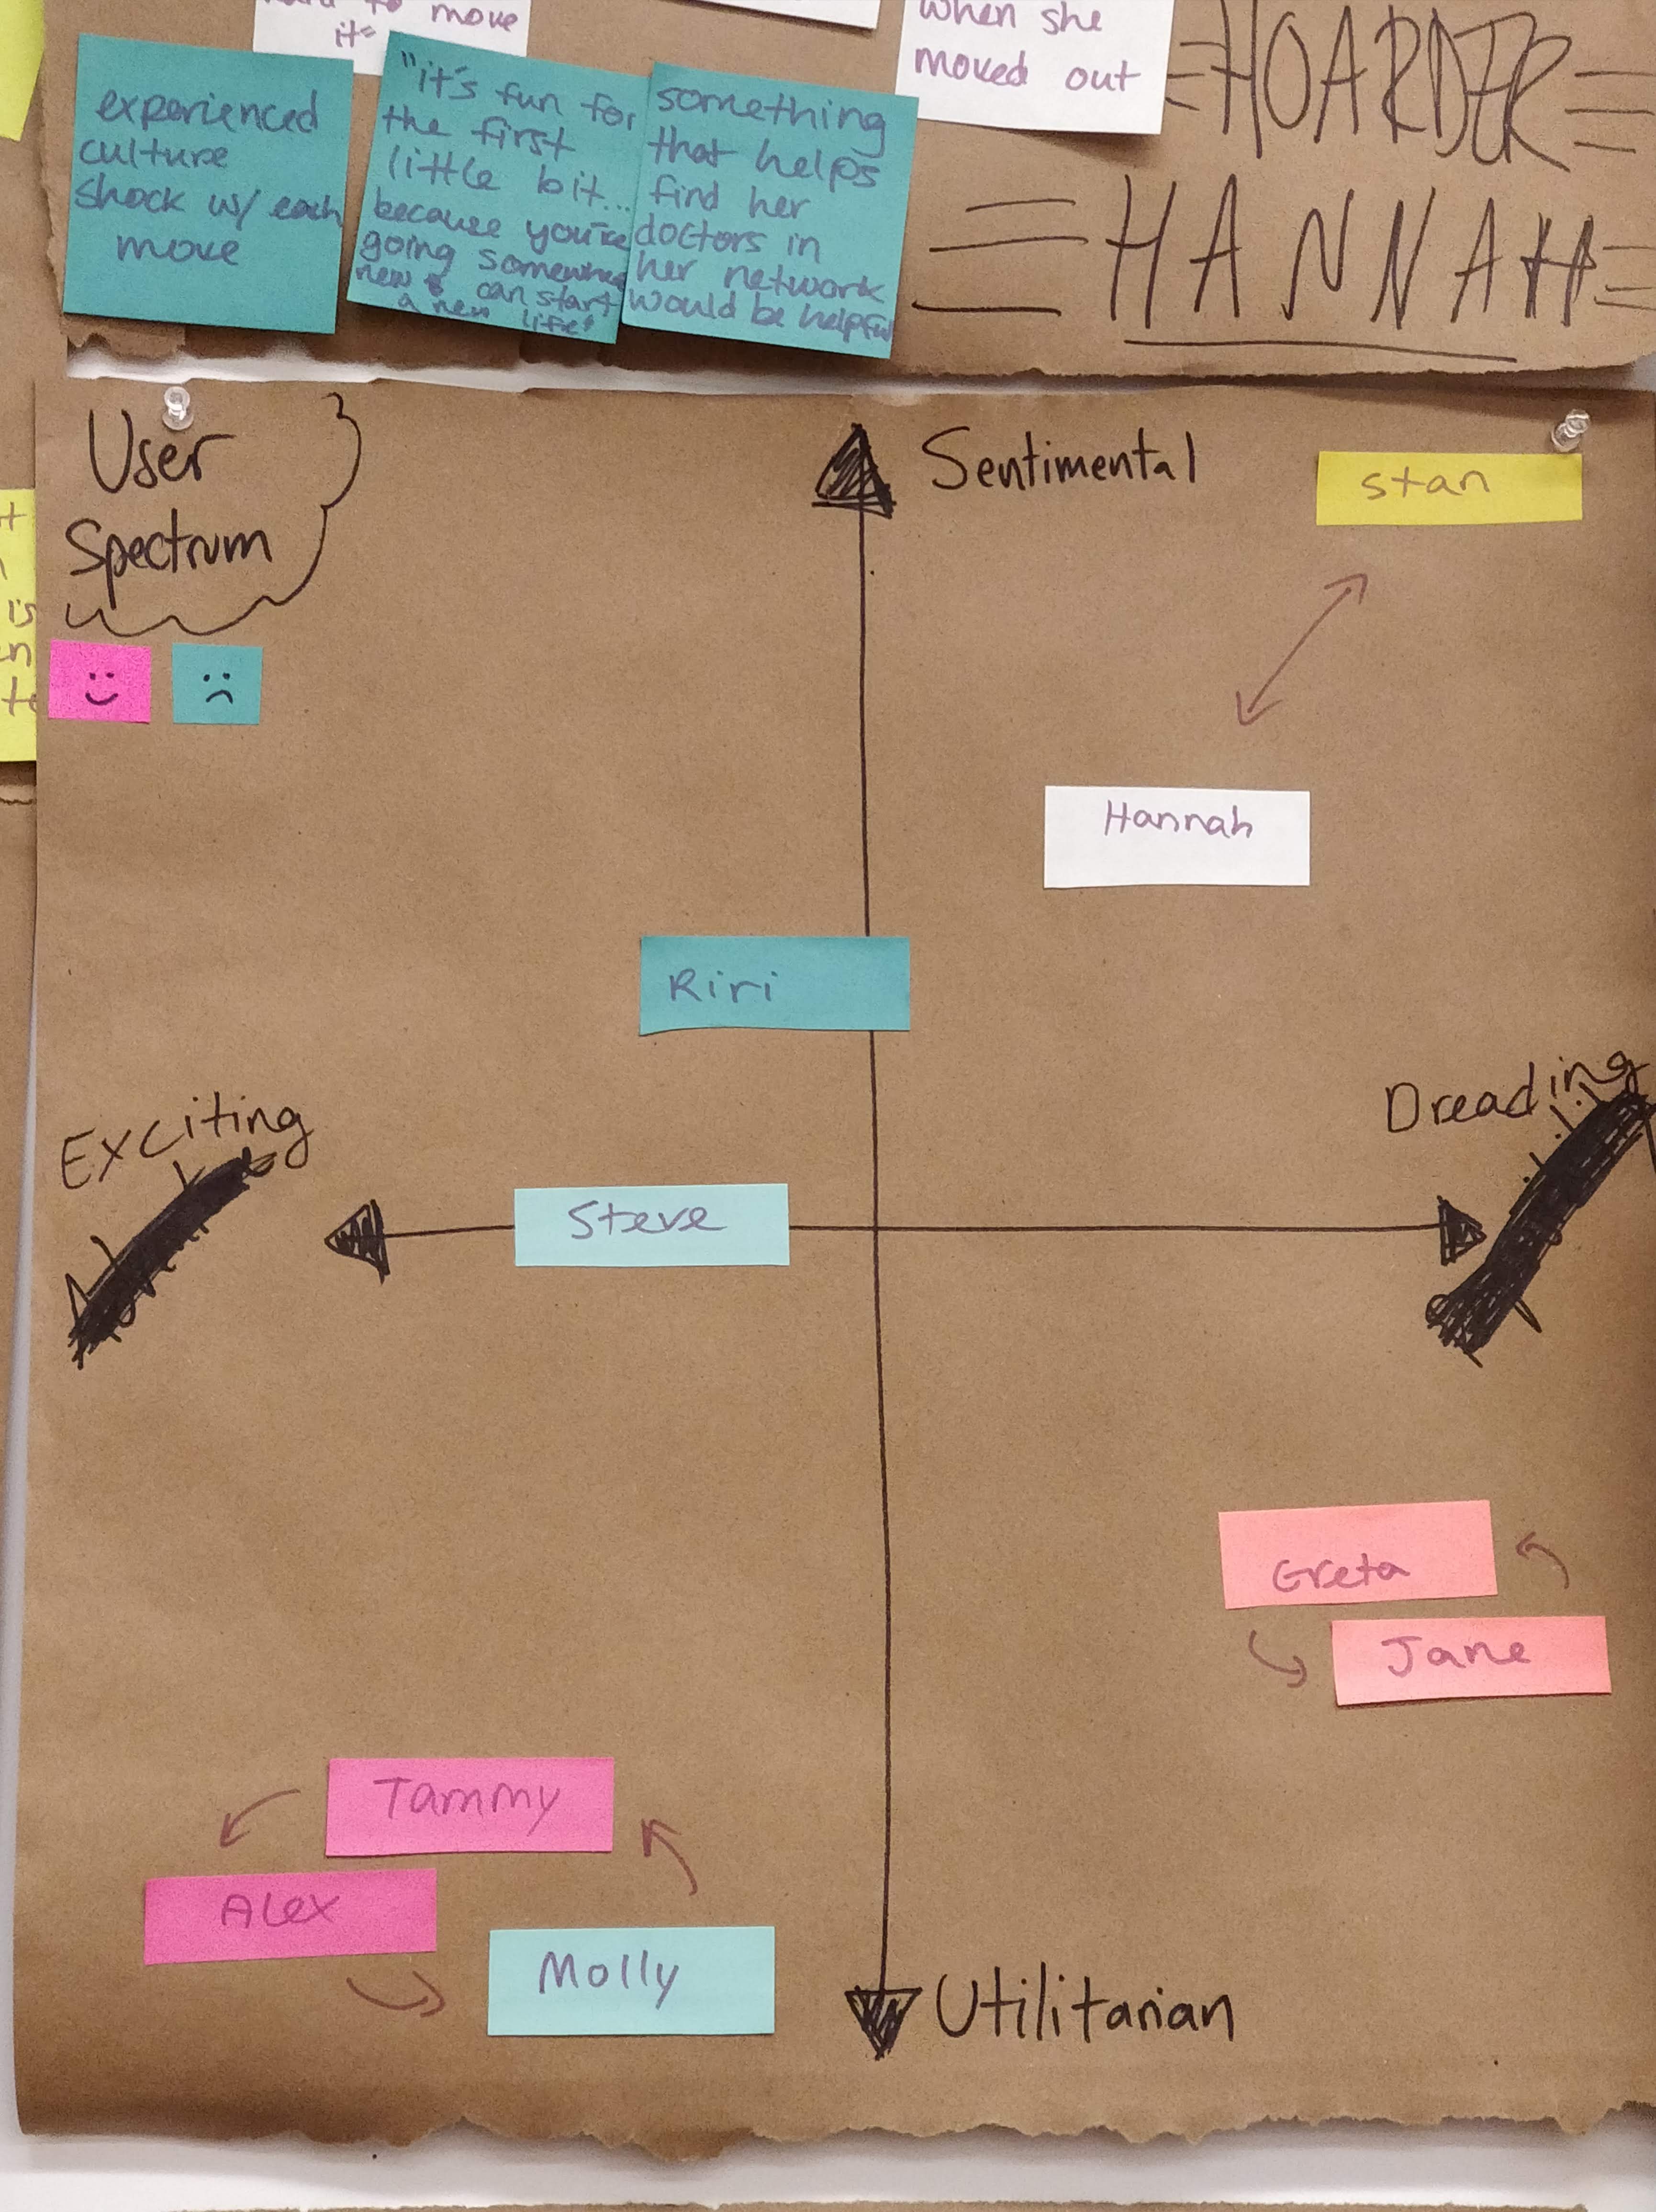 to move
it"
when she
moved out
HOARDER
HANNAH
experienced
culture
shock w/ each
move
"it's fun for
the first
little bit...
because you're
going somewhere
new & can start
a new life"
something
that helps
find her
doctors in
her network
would be helpful
User
Spectrum
Sentimental
stan
Hannah
Riri
Exciting
Dreading
Steve
Greta
Jane
Tammy
Alex
Molly
Utilitarian